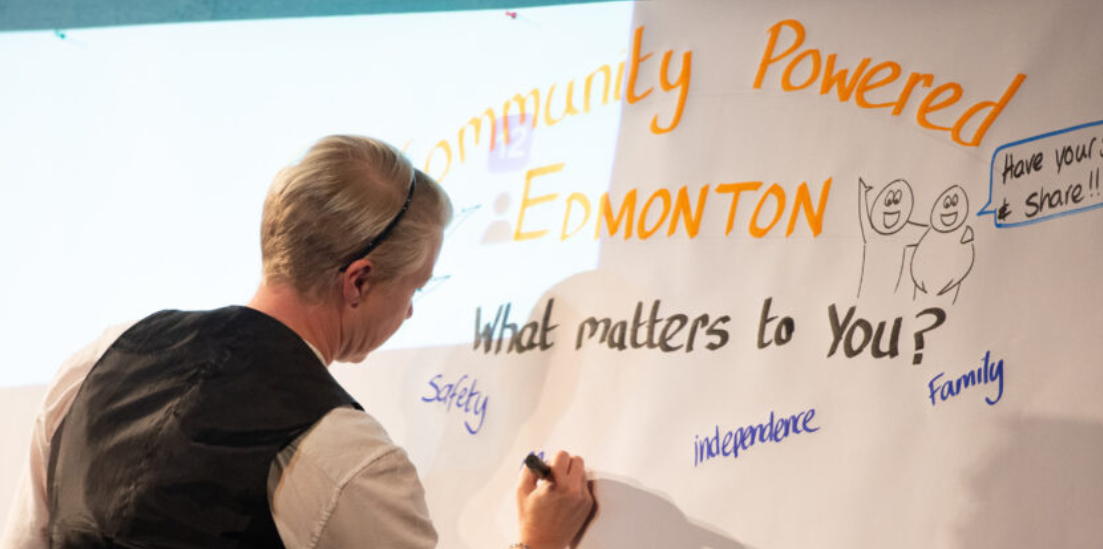 ommunity Powered
EDMONTON
Have your
& Share!!
What matters to You?
Safety
independence
Family
12